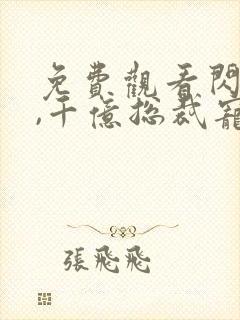 免費觀看閃
,千億總裁寵
張飛飛